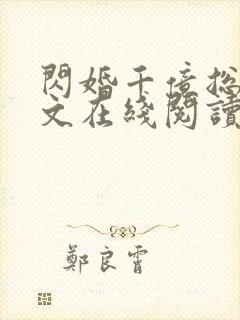 閃婚千億總
文在綫閱讀
鄭良霄